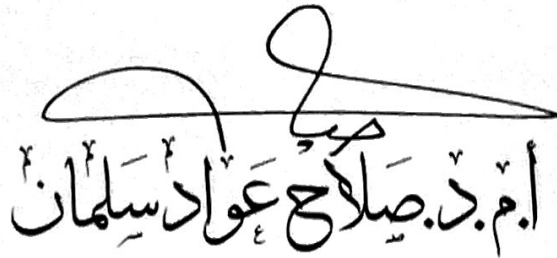 أ.م.د.صَلَاح عَوَاد سَلمَان